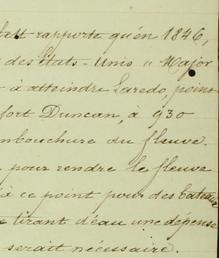 fait rapporte qu'en 1846,
des États-Unis "Major
à atteindre Laredo, point
fort Duncan, à 930
embouchure du fleuve.
pour rendre le fleuve
à ce point pour des bateaux
tirant d'eau une dépense
serait nécessaire.